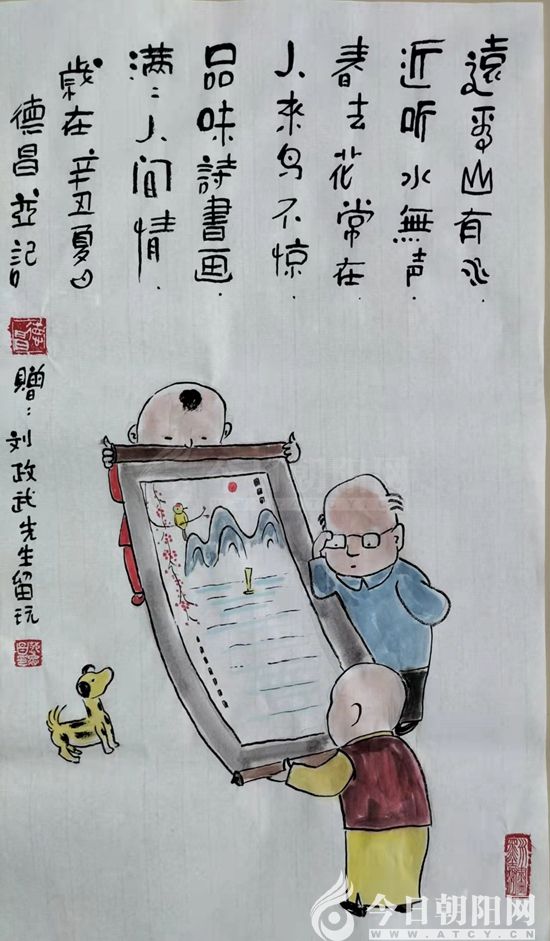 遠看山有色.
近听水無声.
春去花常在.
人来鸟不惊.
品味詩書画.
满〻人间情.
歲在辛丑夏日
德昌並記
德昌
贈：刘政武先生留玩
今日朝阳网
WWW.ATCY.CN